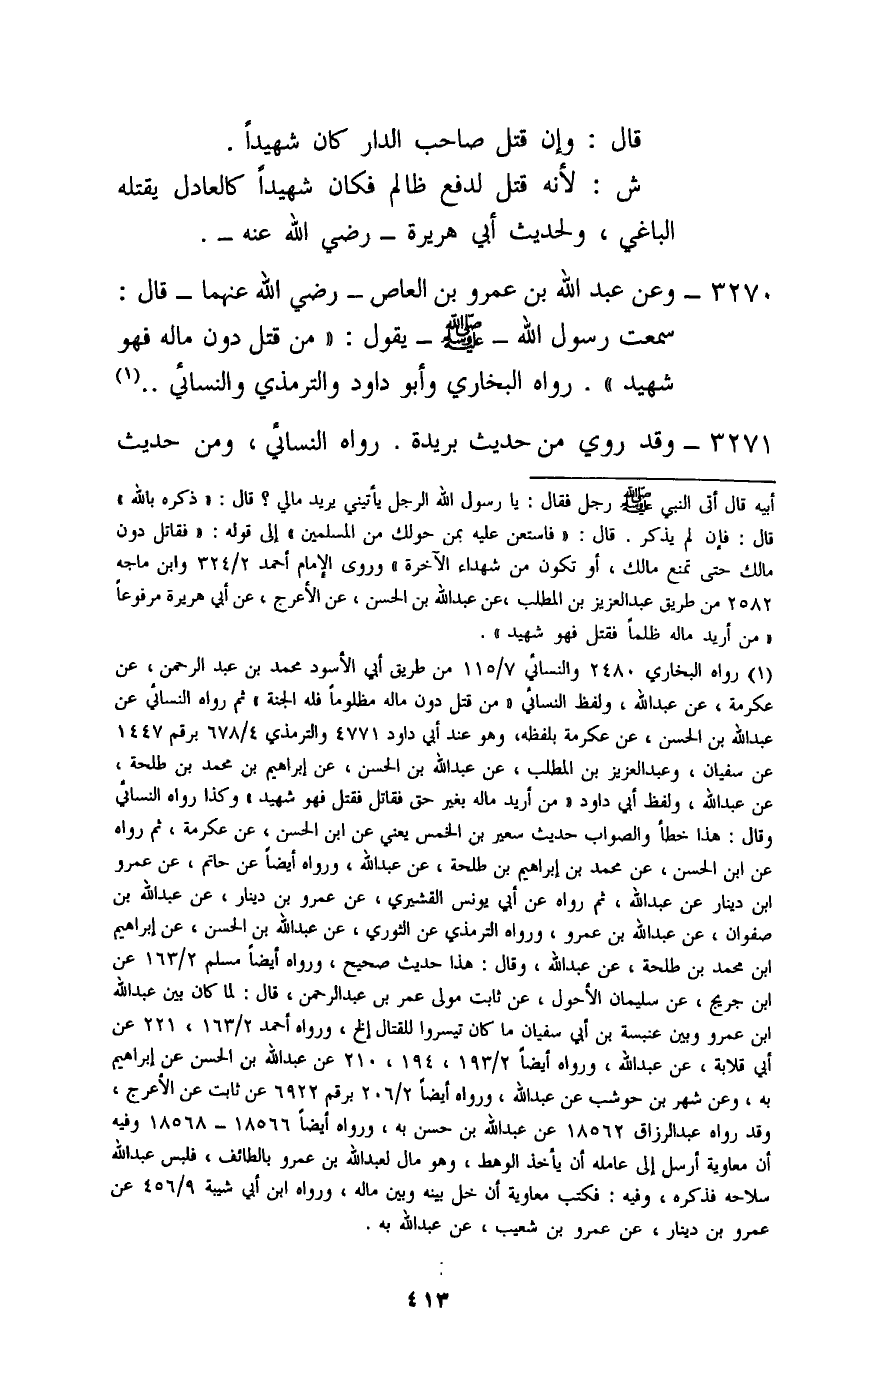 قال : وإن قتل صاحب الدار كان شهيداً .
ش : لأنه قتل لدفع ظالم فكان شهيداً كالعادل يقتله
الباغي ، ولحديث أبي هريرة – رضي الله عنه – .
٣٢٧٠ – وعن عبد الله بن عمرو بن العاص – رضي الله عنهما – قال :
سمعت رسول الله – ﷺ – يقول : « من قتل دون ماله فهو
شهيد » . رواه البخاري وأبو داود والترمذي والنسائي ..(١)
٣٢٧١ – وقد روي من حديث بريدة . رواه النسائي ، ومن حديث
أبيه قال أتى النبي ﷺ رجل فقال : يا رسول الله الرجل يأتيني يريد مالي ؟ قال : « ذكره بالله »
قال : فإن لم يذكر . قال : « فاستعن عليه بمن حولك من المسلمين » إلى قوله : « فقاتل دون
مالك حتى تمنع مالك ، أو تكون من شهداء الآخرة » وروى الإمام أحمد ٣٢٤/٢ وابن ماجه
٢٥٨٢ من طريق عبدالعزيز بن المطلب ،عن عبدالله بن الحسن ، عن الأعرج ، عن أبي هريرة مرفوعاً
« من أريد ماله ظلماً فقتل فهو شهيد » .
(١) رواه البخاري ٢٤٨٠ والنسائي ١١٥/٧ من طريق أبي الأسود محمد بن عبد الرحمن ، عن
عكرمة ، عن عبدالله ، ولفظ النسائي « من قتل دون ماله مظلوماً فله الجنة » ثم رواه النسائي عن
عبدالله بن الحسن ، عن عكرمة بلفظه، وهو عند أبي داود ٤٧٧١ والترمذي ٦٧٨/٤ برقم ١٤٤٧
عن سفيان ، وعبدالعزيز بن المطلب ، عن عبدالله بن الحسن ، عن إبراهيم بن محمد بن طلحة ،
عن عبدالله ، ولفظ أبي داود « من أريد ماله بغير حق فقاتل فقتل فهو شهيد » وكذا رواه النسائي
وقال : هذا خطأ والصواب حديث سعير بن الخمس يعني عن ابن الحسن ، عن عكرمة ، ثم رواه
عن ابن الحسن ، عن محمد بن إبراهيم بن طلحة ، عن عبدالله ، ورواه أيضاً عن حاتم ، عن عمرو
ابن دينار عن عبدالله ، ثم رواه عن أبي يونس القشيري ، عن عمرو بن دينار ، عن عبدالله بن
صفوان ، عن عبدالله بن عمرو ، ورواه الترمذي عن الثوري ، عن عبدالله بن الحسن ، عن إبراهيم
ابن محمد بن طلحة ، عن عبدالله ، وقال : هذا حديث صحيح ، ورواه أيضاً مسلم ١٦٣/٢ عن
ابن جريج ، عن سليمان الأحول ، عن ثابت مولى عمر بن عبدالرحمن ، قال : لما كان بين عبدالله
ابن عمرو وبين عنبسة بن أبي سفيان ما كان تيسروا للقتال إلخ ، ورواه أحمد ١٦٣/٢ ، ٢٢١ عن
أبي قلابة ، عن عبدالله ، ورواه أيضاً ١٩٣/٢ ، ١٩٤ ، ٢١٠ عن عبدالله بن الحسن عن إبراهيم
به ، وعن شهر بن حوشب عن عبدالله ، ورواه أيضاً ٢٠٦/٢ برقم ٦٩٢٢ عن ثابت عن الأعرج ،
وقد رواه عبدالرزاق ١٨٥٦٢ عن عبدالله بن حسن به ، ورواه أيضاً ١٨٥٦٦ – ١٨٥٦٨ وفيه
أن معاوية أرسل إلى عامله أن يأخذ الوهط ، وهو مال لعبدالله بن عمرو بالطائف ، فلبس عبدالله
سلاحه فذكره ، وفيه : فكتب معاوية أن خل بينه وبين ماله ، ورواه ابن أبي شيبة ٤٥٦/٩ عن
عمرو بن دينار ، عن عمرو بن شعيب ، عن عبدالله به .
٤١٣